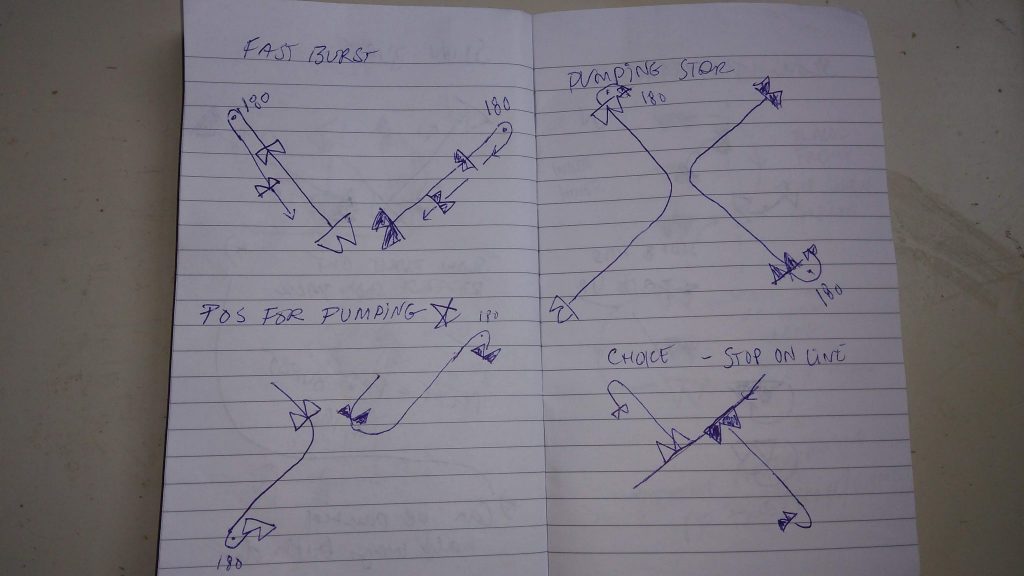 FAST BURST
180
180
POS FOR PUMPING
180
180
PUMPING STAR
180
180
CHOICE - STOP ON LINE